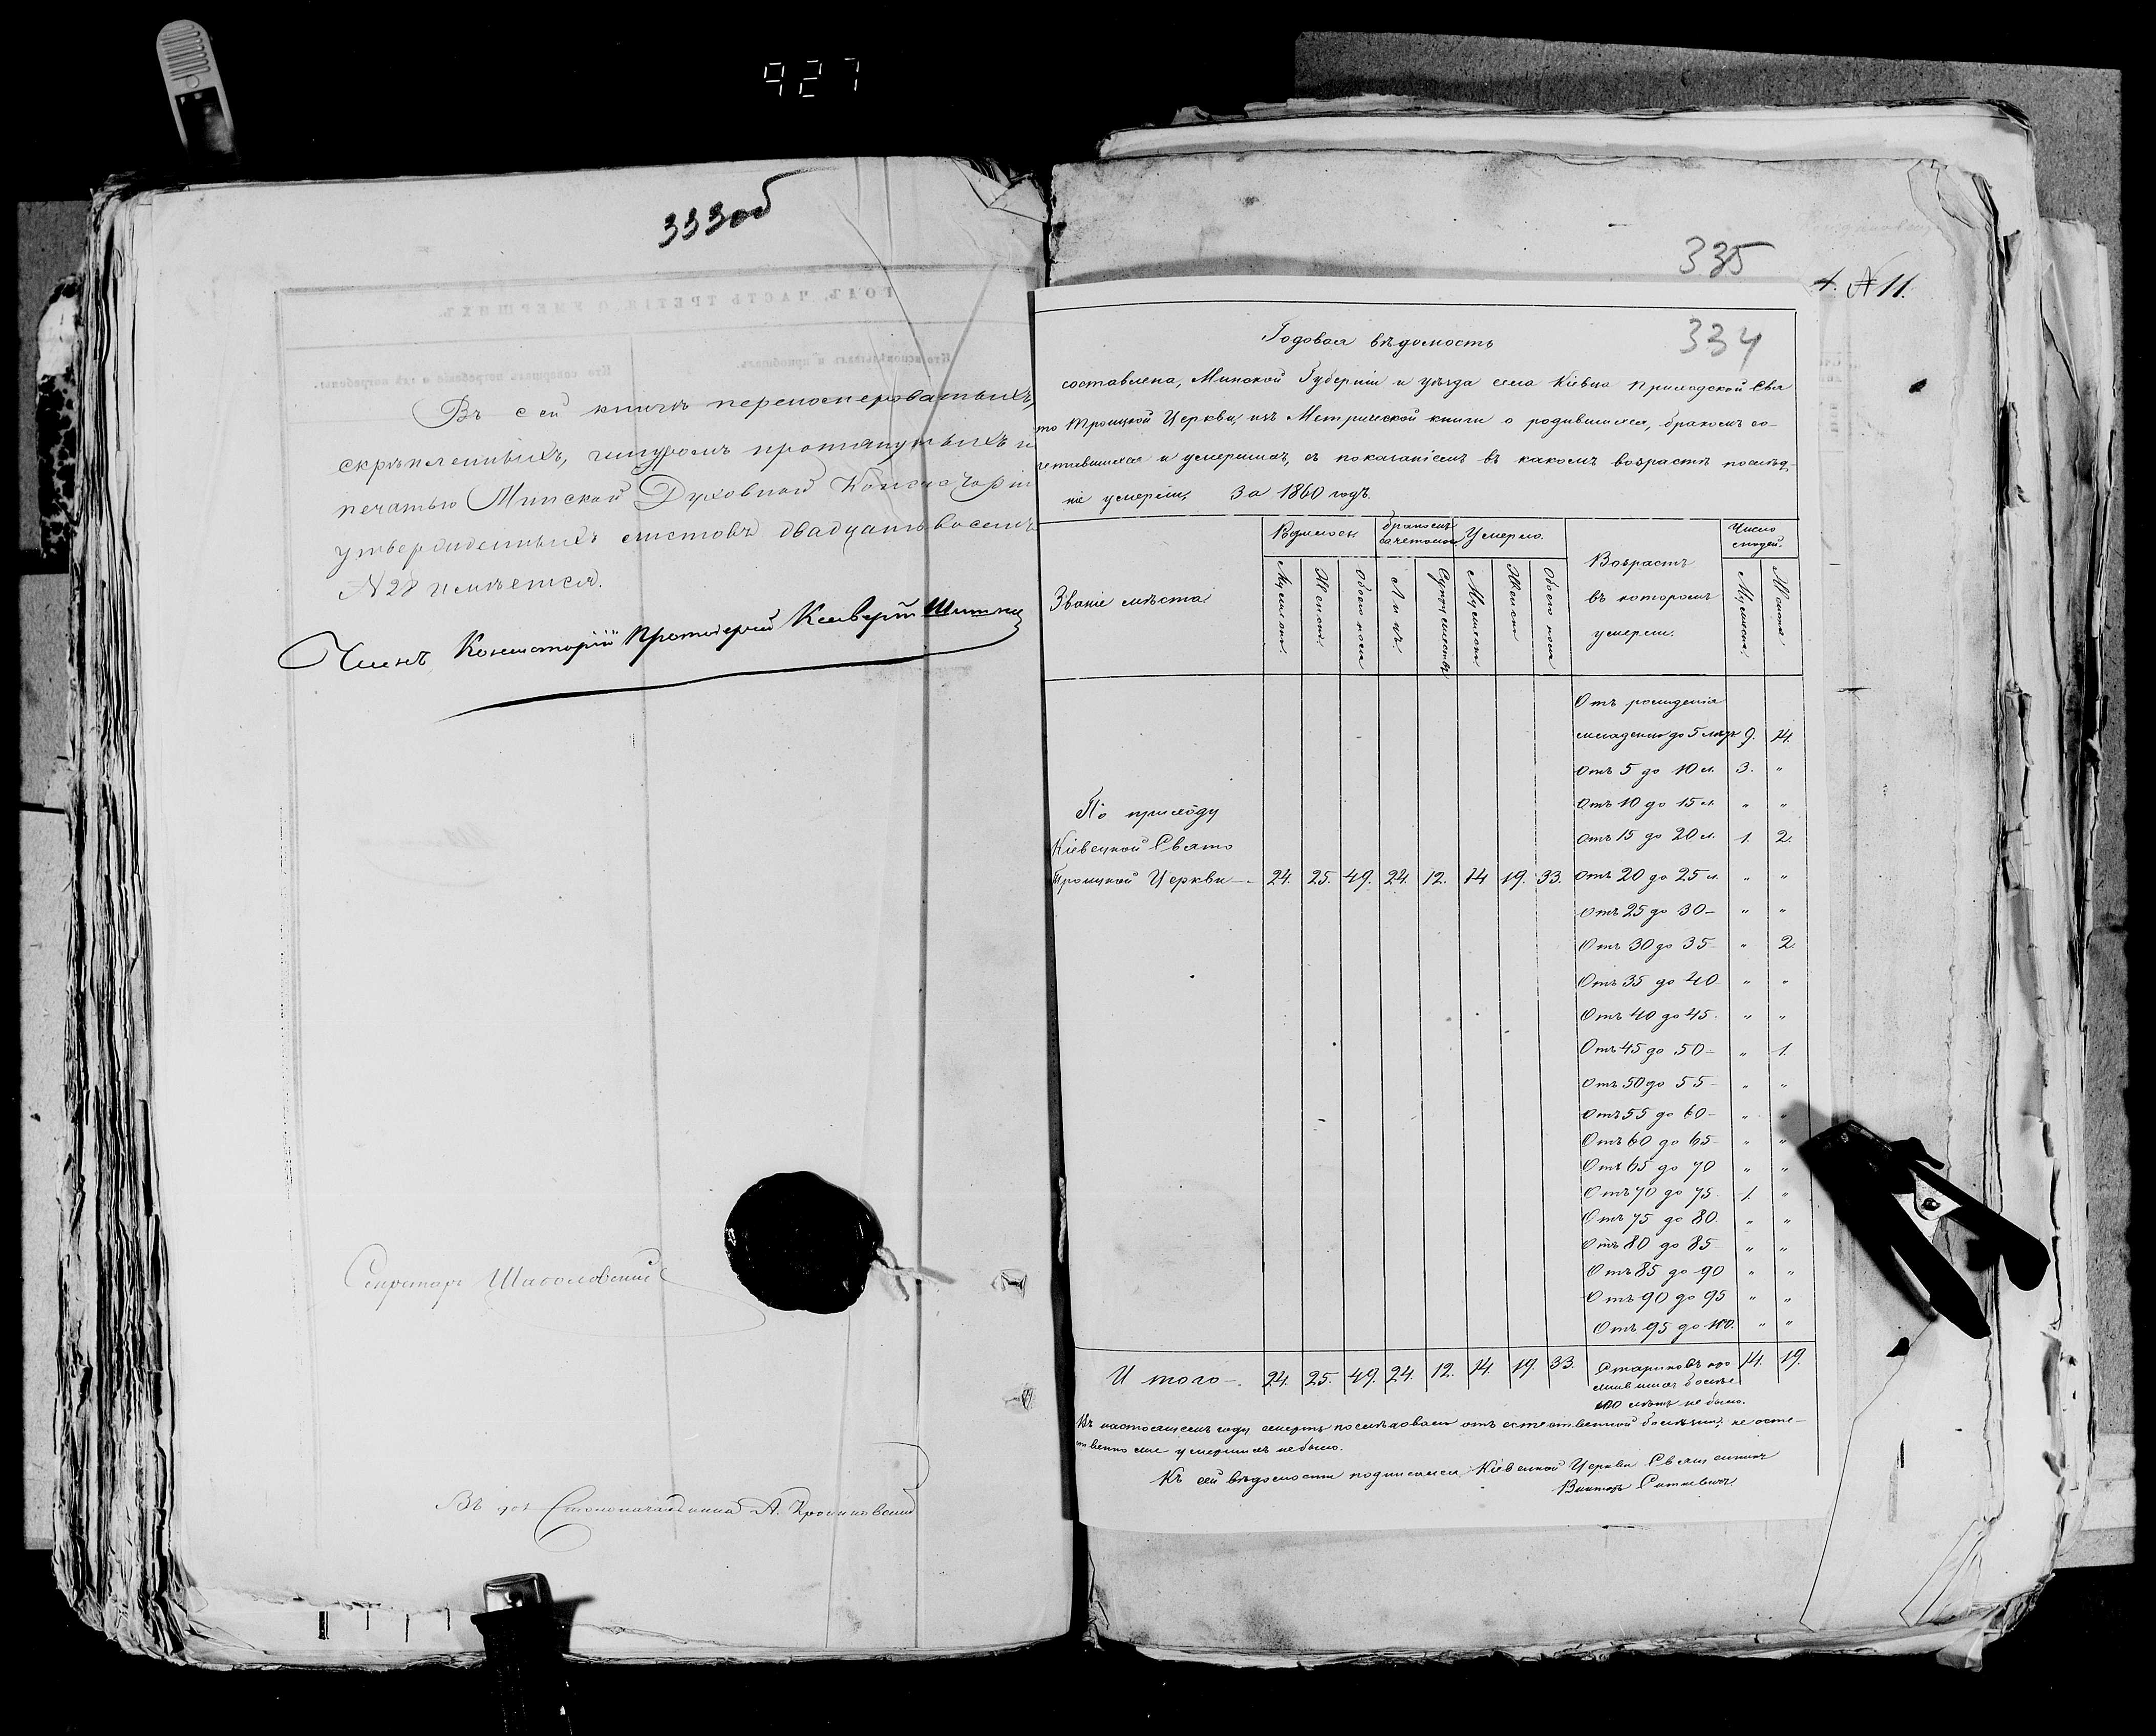 927
333об
ГОДЪ, ЧАСТЬ ТРЕТІЯ, О УМЕРШИХЪ.
Кто исповѣдывалъ и пріобщалъ.
Кто совершалъ погребеніе и гдѣ погребены.
Въ сей книгѣ перенумерованныхъ,
скрѣпленныхъ, шнуромъ протянутыхъ и
печатью Минской Духовной Консисторіи
утвержденныхъ листовъ двадцать восемь
N 28 имѣется.
Членъ Консисторіи Протоіерей
Секретарь
Въ дол. Столоначальника А.
335
№ 11.
334
Годовая вѣдомость
составлена, Минской Губерніи и уѣзда села Кіевца Приходской Свя
то Троицкой Церкви, изъ Метрической книги о родившихся, бракомъ со-
четавшихся и умершихъ, съ показаніемъ въ какомъ возрастѣ послѣд-
ніе умерли, За 1860 годъ.
Званіе мѣста
Родилось
Бракомъ сочеталось
Умерло
Возрастъ въ которомъ умерли.
Число людей.
Мужеск. Женск. Обоего пола Лицъ. Супружествъ Мужеск. Женск. Обоего пола Мужеск. Женск.
Отъ рожденія
младенцо до 5 лѣтъ 9. 14.
Отъ 5 до 10 л. 3. "
Отъ 10 до 15 л. " "
Отъ 15 до 20 л. 1. 2.
По приходу
Кіевецкой Свято
Троицкой Церкви - 24. 25. 49. 24. 12. 14 19. 33. Отъ 20 до 25 л. " "
Отъ 25 до 30 - " "
Отъ 30 до 35 - " 2.
Отъ 35 до 40 " "
Отъ 40 до 45 - " "
Отъ 45 до 50 - " 1.
Отъ 50 до 55 - " "
Отъ 55 до 60 - " "
Отъ 60 до 65 - " "
Отъ 65 до 70 " "
Отъ 70 до 75 1. "
Отъ 75 до 80 " "
Отъ 80 до 85 - " "
Отъ 85 до 90 " "
Отъ 90 до 95 " "
Отъ 95 до 100. " "
Итого - 24. 25. 49. 24. 12. 14. 19. 33. Стариковъ про 14. 19.
жившихъ болѣе
100 лѣтъ не было.
Въ настоящемъ году смерть послѣдовала отъ естественной болѣзни, не есте-
ственно же умершихъ не было.
Къ сей вѣдомости подписался Кіевецкой Церкви Священникъ
Викторъ Ситкевичъ